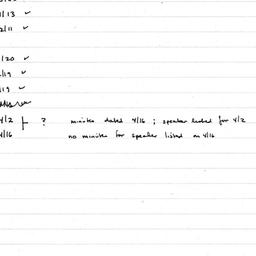 /13 ✓
2/11 ✓
/20 ✓
/19 ✓
/19 ✓
4/2 ? minutes dated 4/16 ; speaker listed for 4/2
4/16 no minutes for speaker listed on 4/16